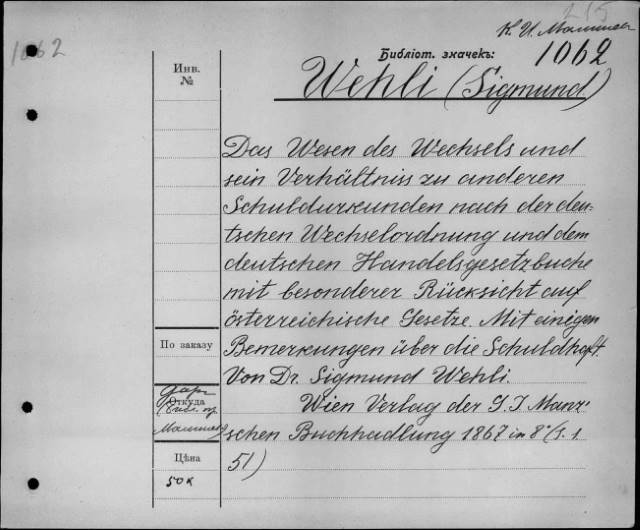 215
К. И. Малышев
1062
Библіот. значекъ:
1062
Инв.
№
Wehli (Sigmund)
Das Wesen des Wechsels und
sein Verhältniss zu anderen
Schuldurkunden nach der deu-
tschen Wechselordnung und dem
deutschen Handelsgesetzbuche
mit besonderer Rücksicht auf
österreichische Gesetze. Mit einigen
Bemerkungen über die Schuldhaft.
Von Dr. Sigmund Wehli.
Wien Verlag der G. J. Manz'
schen Buchhadlung 1867 in 8º (S. 1
51)
По заказу
Откуда
Цѣна
50 к